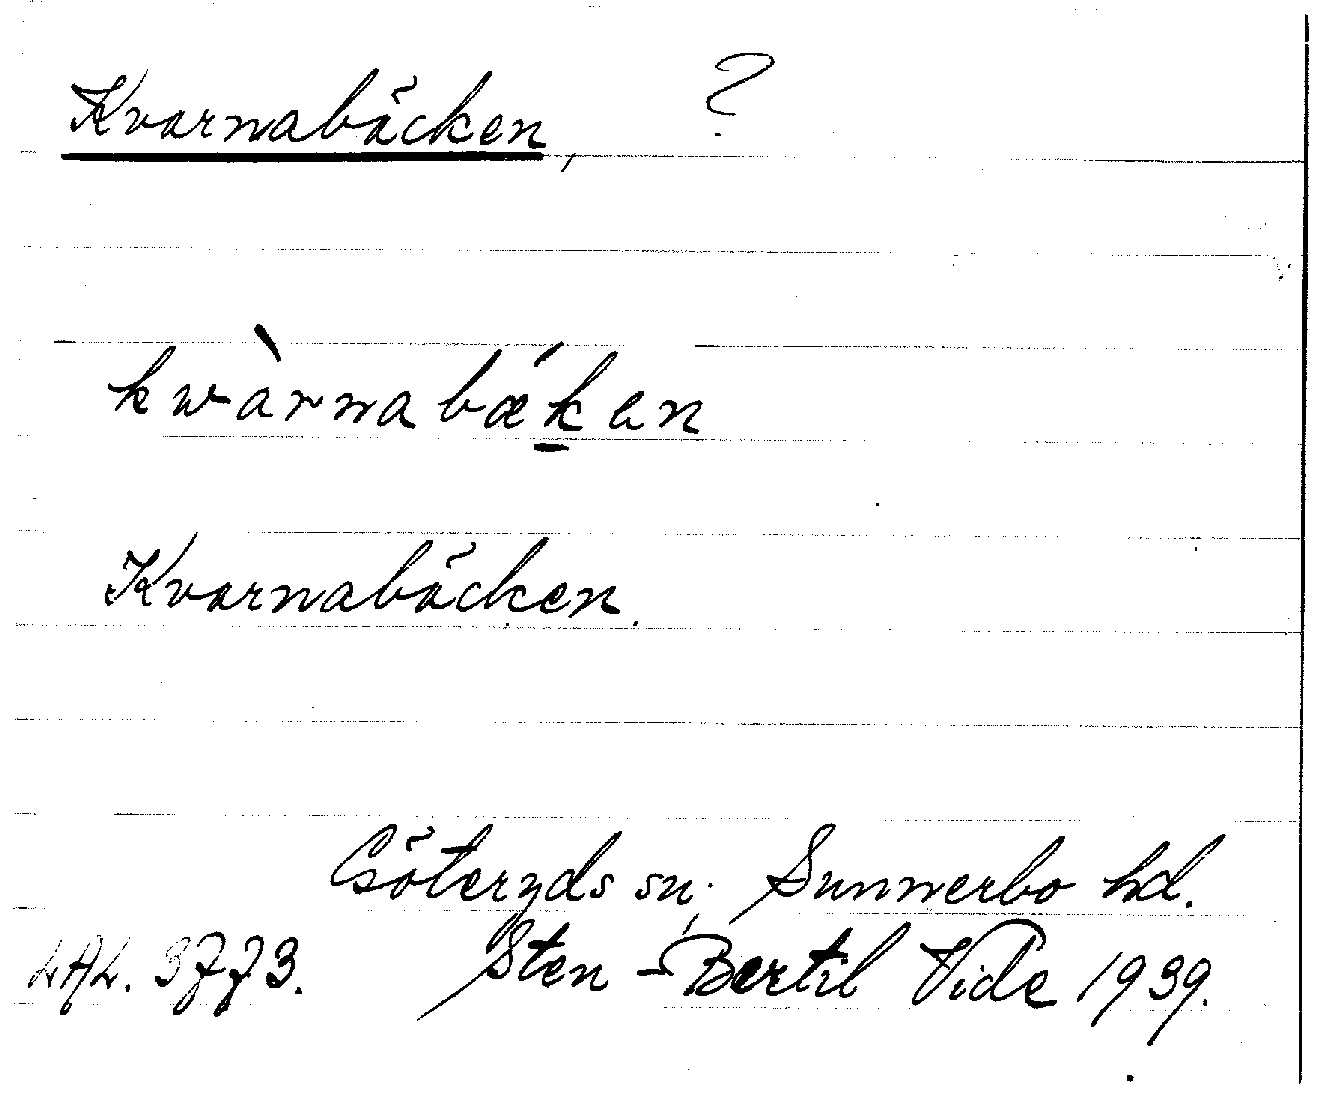 Kvarnabäcken, ?
kwàrnabǽḵen
Kvarnabäcken.
Göteryds sn, Sunnerbo hd.
LAL. 3773. Sten-Bertil Vide 1939.